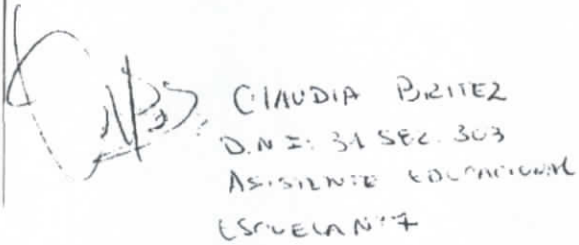 CLAUDIA BRITEZ
D.N.I: 31 303
ASISTENTE EDUCACIONAL
ESCUELA N°7